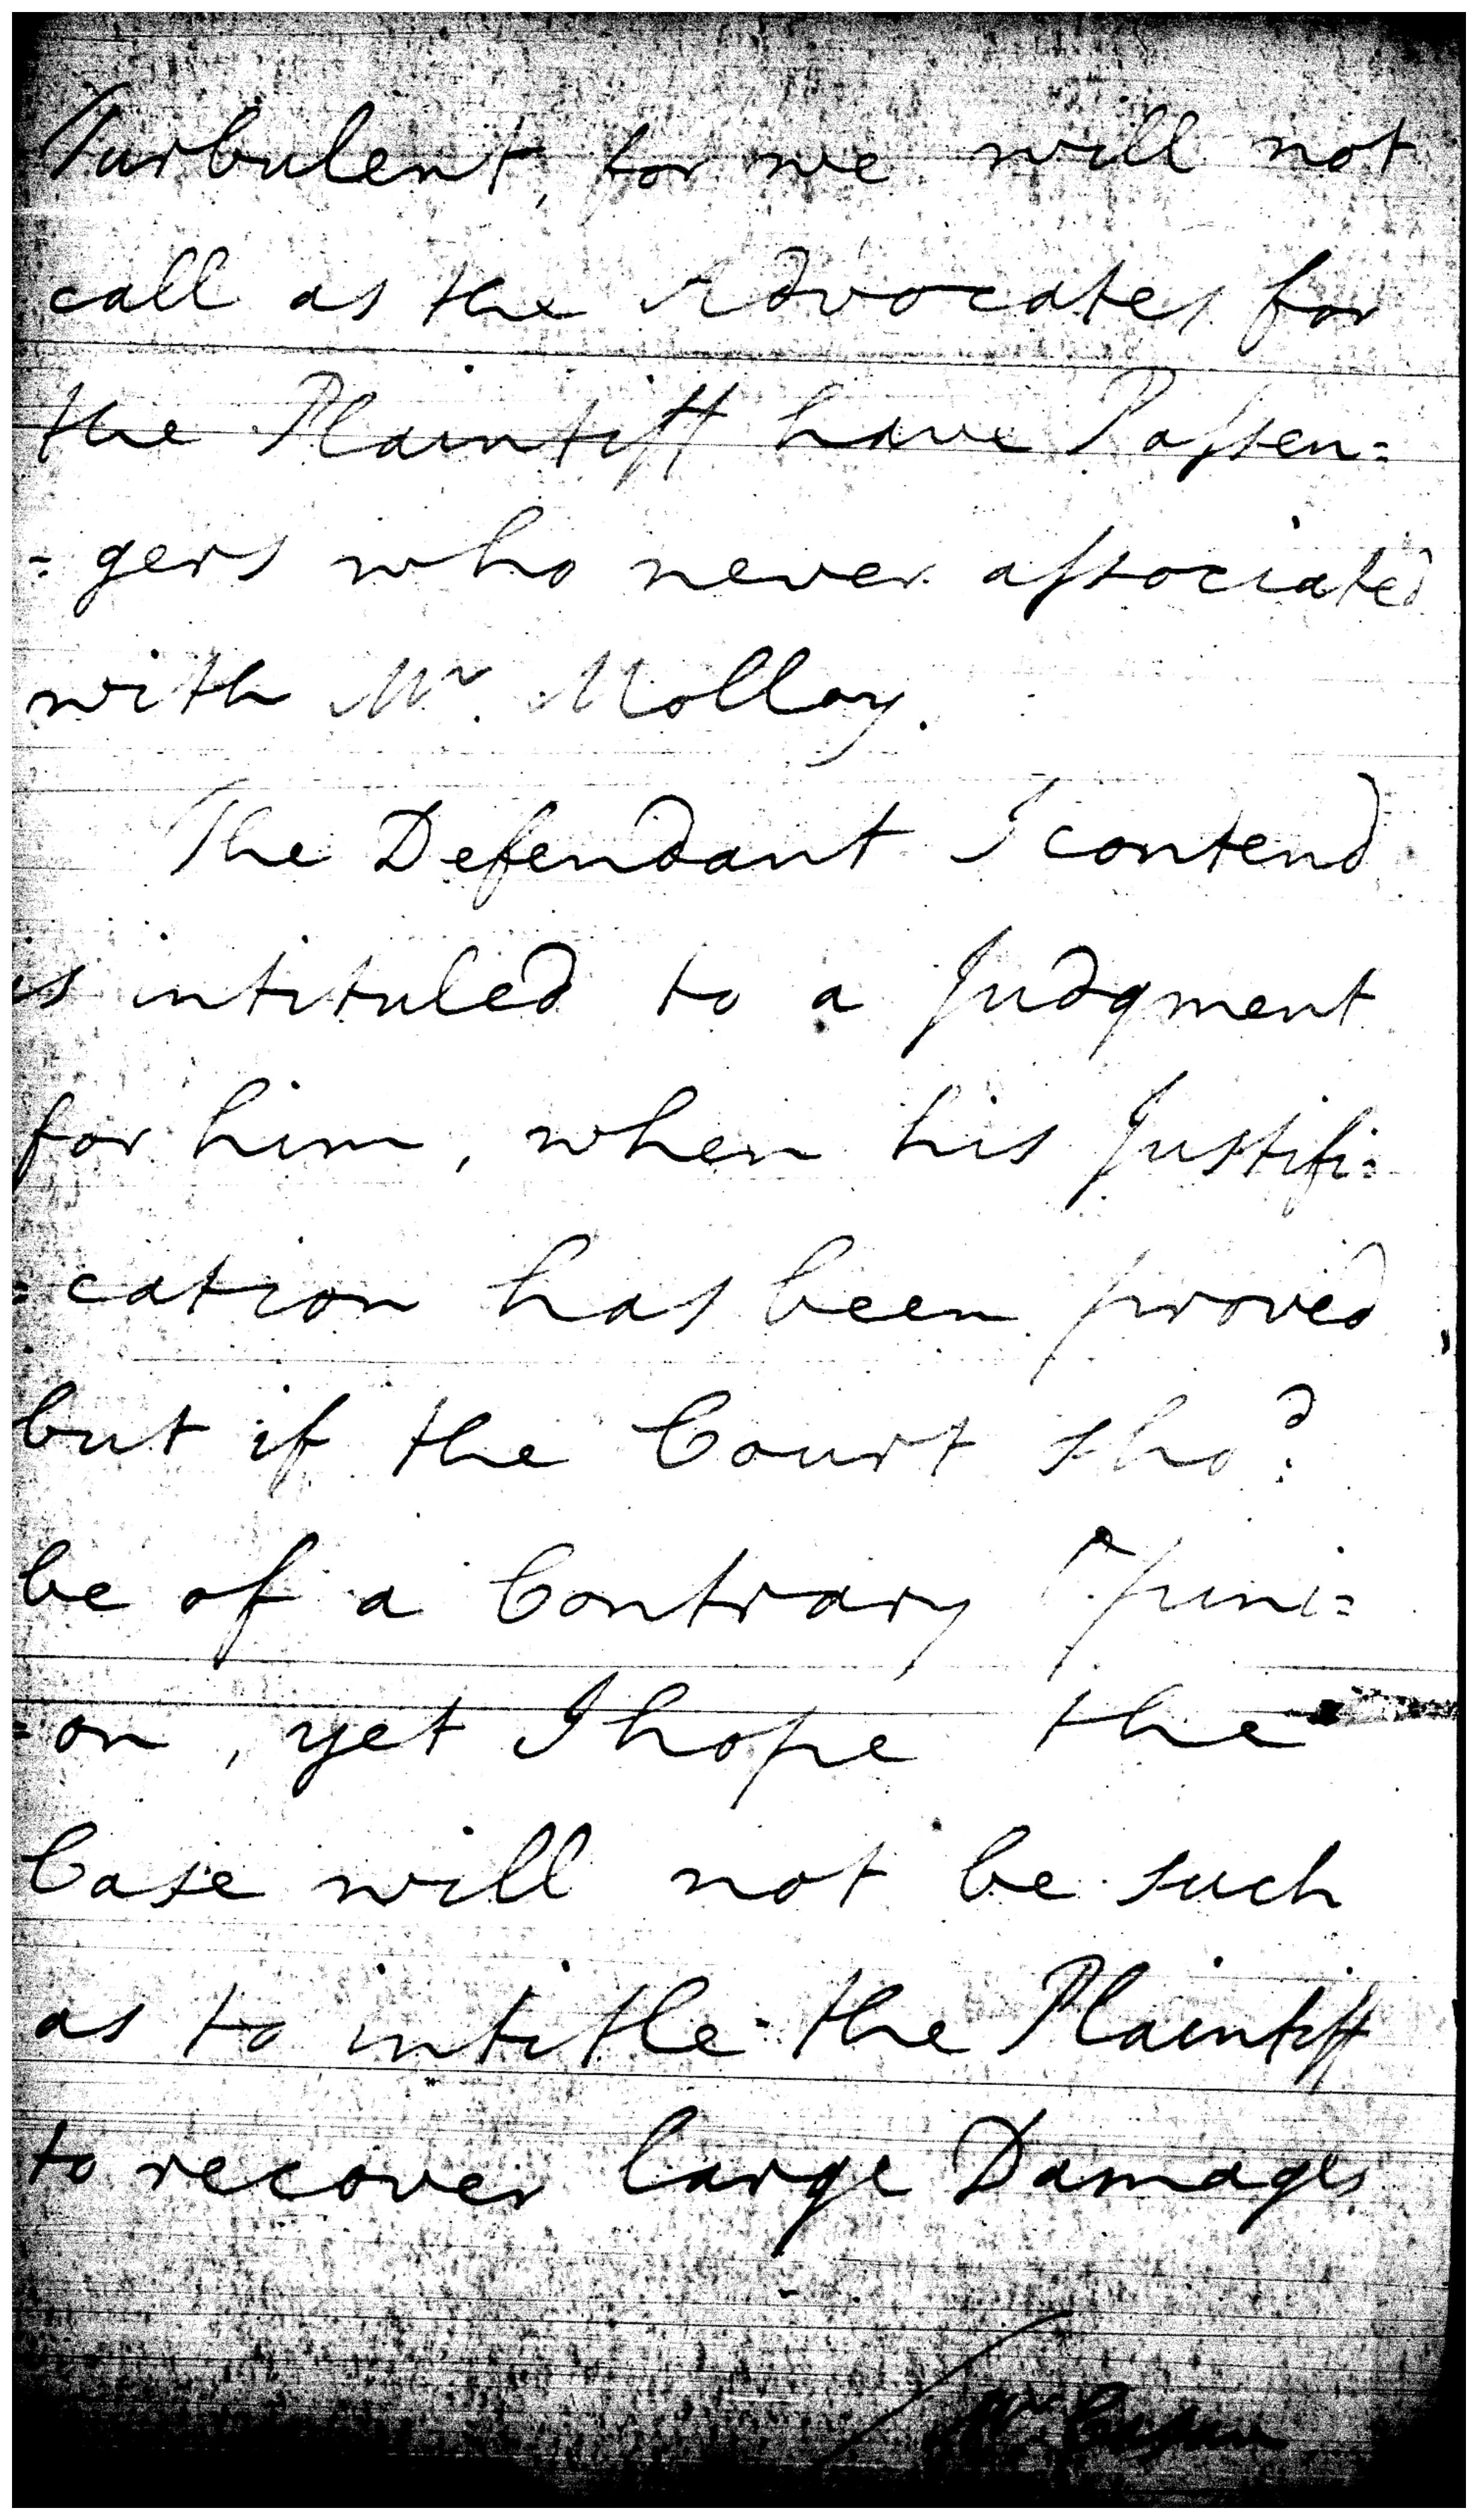 Turbulent, for we will not
call as the Advocates for
the Plaintiff have Passen=
=gers who never associated
with Mr. Molloy.
The Defendant I contend
is intituled to a Judgment
for him, when his Justifi=
=cation has been proved,
but if the Court shod.
be of a Contrary Opini=
=on, yet I hope the
Case will not be such
as to intitle the Plaintiff
to recover large Damages